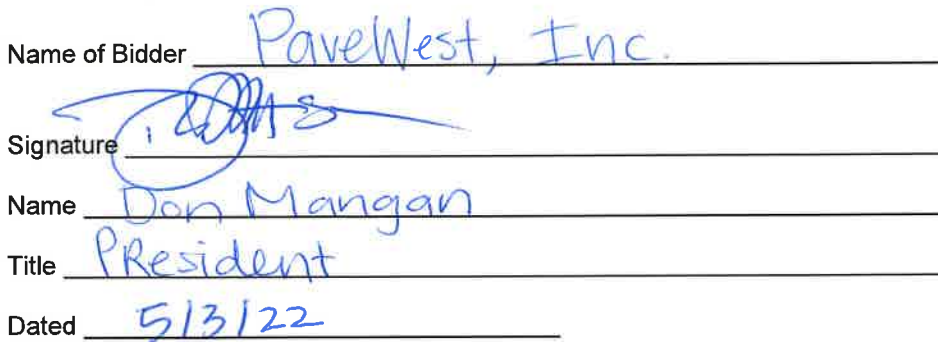 Name of Bidder PaveWest, Inc.
Signature
Name Don Mangan
Title PResident
Dated 5/3/22